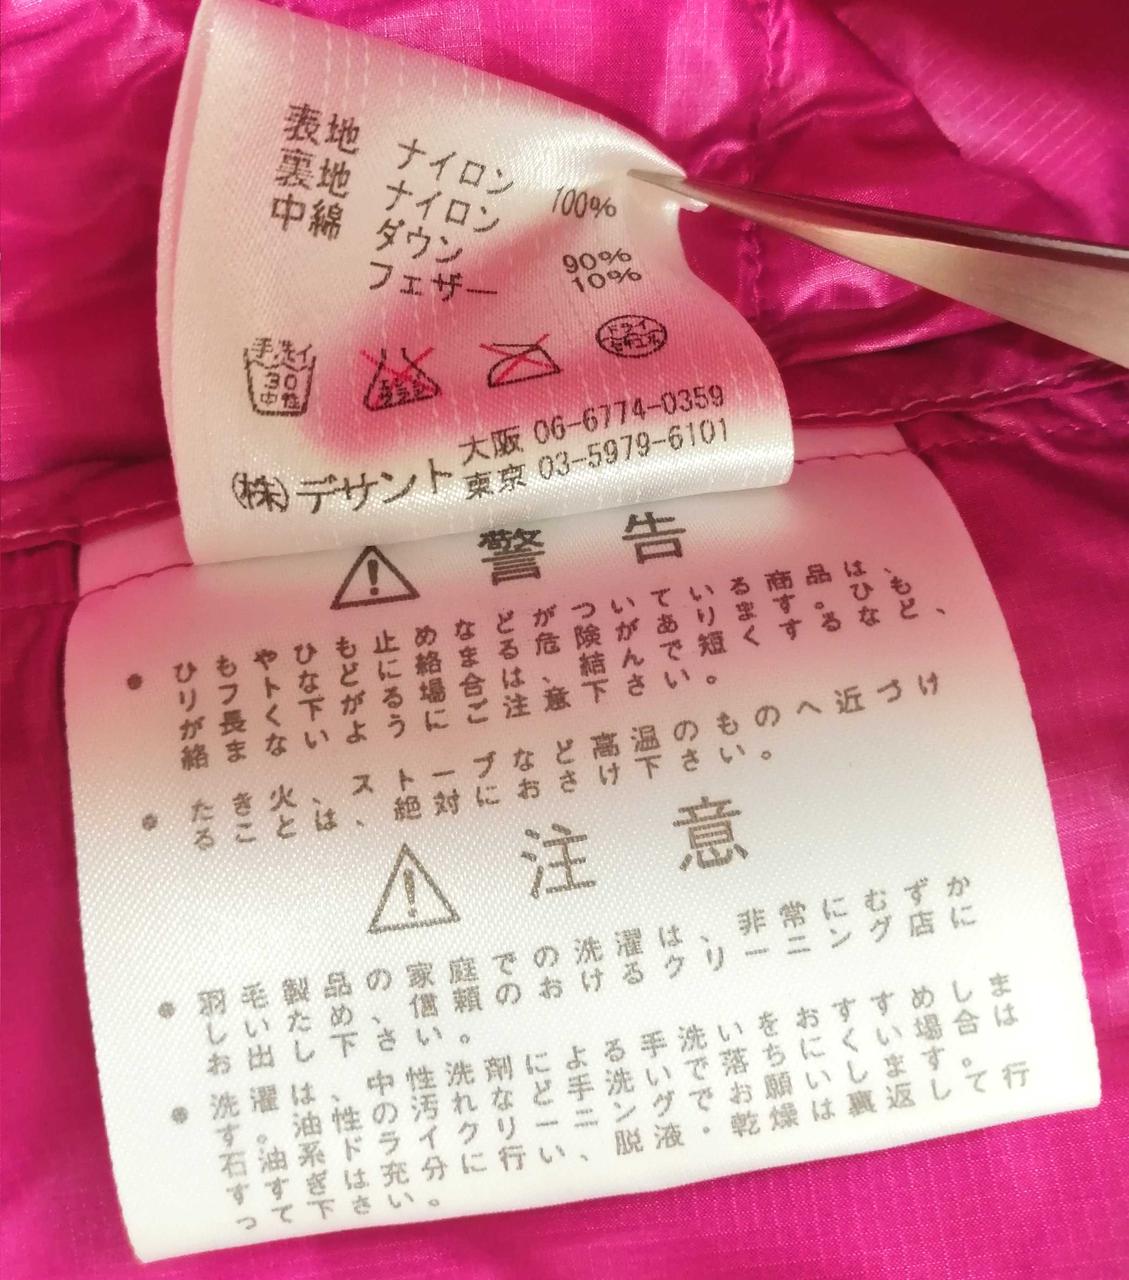 表地 ナイロン
裏地 ナイロン 100%
中綿 ダウン 90%
フェザー 10%
手洗イ
30
中性
ドライ
大阪 06-6774-0359
(株)デサント 東京 03-5979-6101
警告
● ひもやひも止めなどがついている商品は、
リフトなどに絡まる危険があります。ひも
が長く下がる場合は、結んで短くするなど、
絡まないようにご注意下さい。
● たき火、ストーブなど高温のものへ近づけ
ることは、絶対におさけ下さい。
注意
● 羽毛製品の家庭でのお洗濯は、非常にむずか
しいため、信頼のおけるクリーニング店に
お出し下さい。
● 洗濯は、中性洗剤による手洗いをおすすめしま
す。油性の汚れなど手洗いで落ちにくい場合は
石油系ドライクリーニングでお願いします。
すすぎは充分に行い、脱液・乾燥は裏返して行
って下さい。